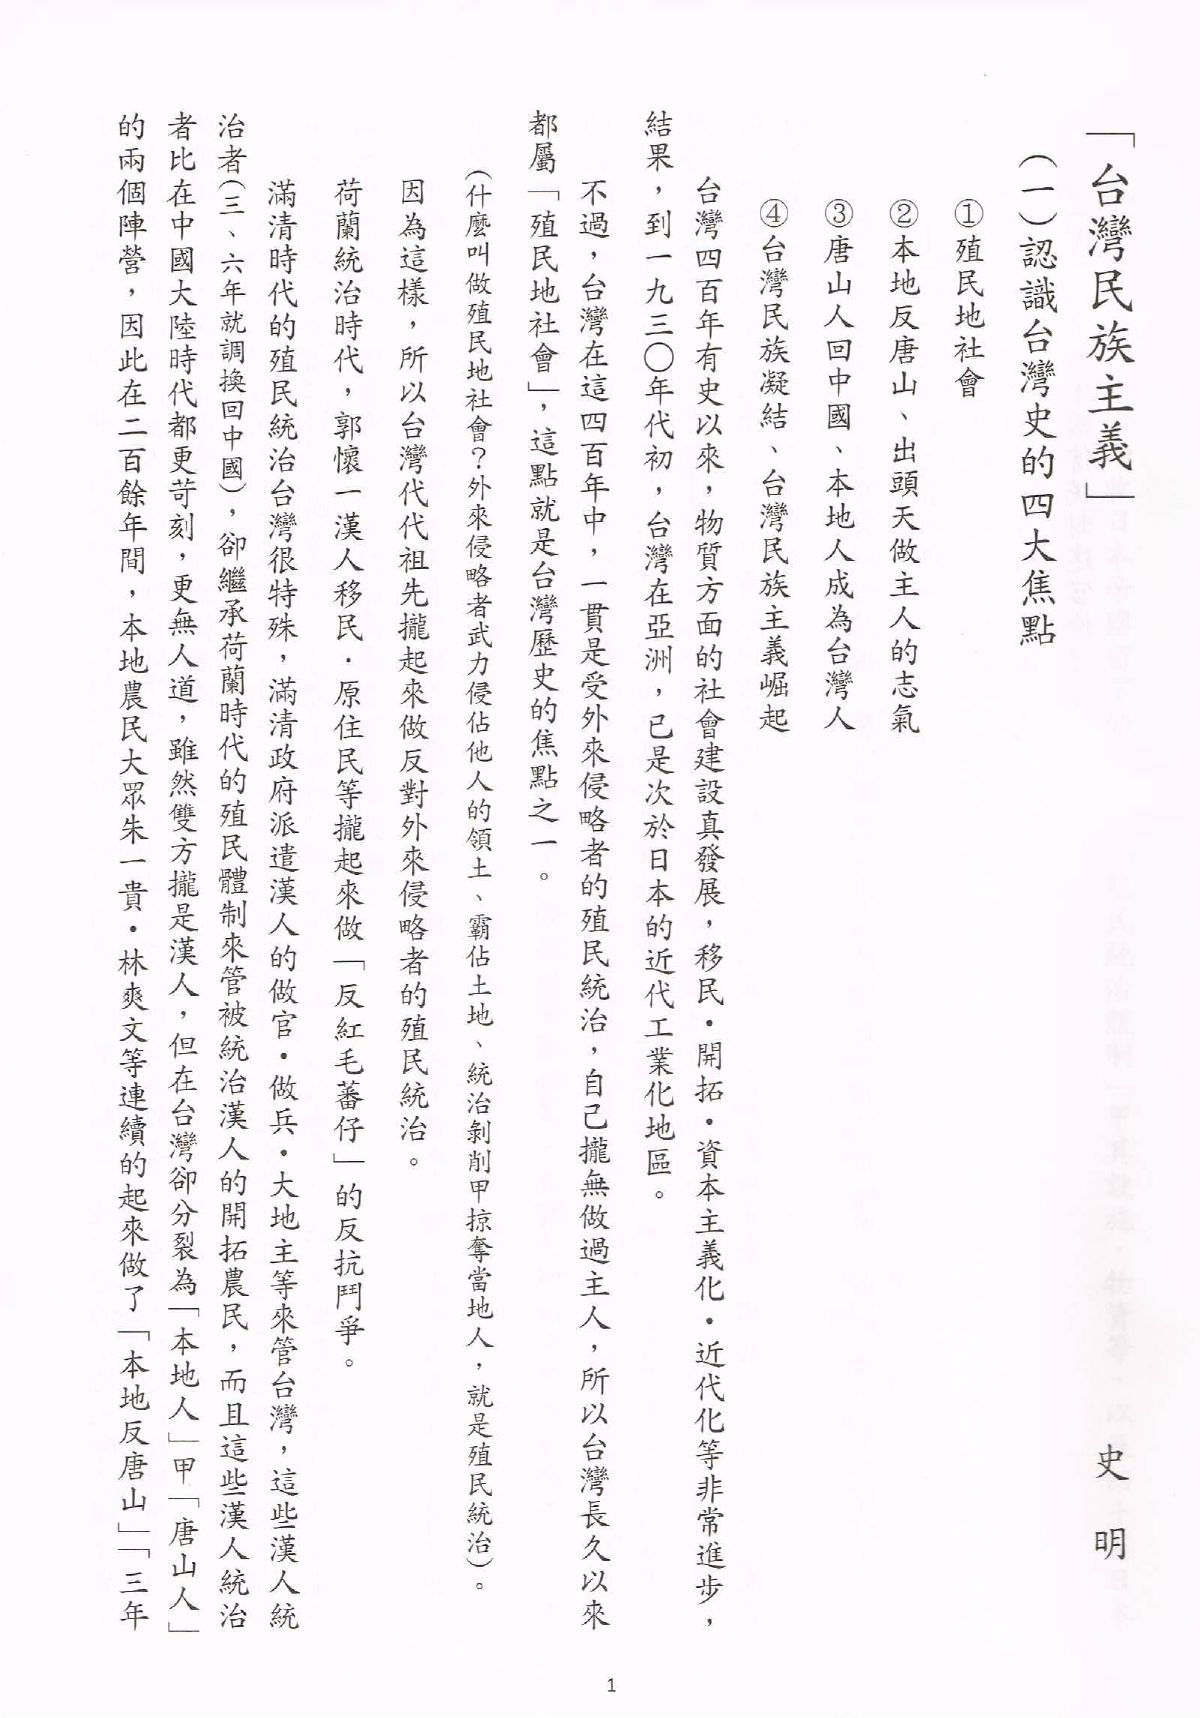 「台灣民族主義」　　史　明
(一)認識台灣史的四大焦點
①殖民地社會
②本地反唐山、出頭天做主人的志氣
③唐山人回中國、本地人成為台灣人
④台灣民族凝結、台灣民族主義崛起
台灣四百年有史以來，物質方面的社會建設真發展，移民・開拓・資本主義化・近代化等非常進步，
結果，到一九三〇年代初，台灣在亞洲，已是次於日本的近代工業化地區。
不過，台灣在這四百年中，一貫是受外來侵略者的殖民統治，自己攏無做過主人，所以台灣長久以來
都屬「殖民地社會」，這點就是台灣歷史的焦點之一。
(什麼叫做殖民地社會？外來侵略者武力侵佔他人的領土、霸佔土地、統治剝削甲掠奪當地人，就是殖民統治)。
因為這樣，所以台灣代代祖先攏起來做反對外來侵略者的殖民統治。
荷蘭統治時代，郭懷一漢人移民．原住民等攏起來做「反紅毛蕃仔」的反抗鬥爭。
滿清時代的殖民統治台灣很特殊，滿清政府派遣漢人的做官・做兵・大地主等來管台灣，這些漢人統
治者(三、六年就調換回中國)，卻繼承荷蘭時代的殖民體制來管被統治漢人的開拓農民，而且這些漢人統治
者比在中國大陸時代都更苛刻，更無人道，雖然雙方攏是漢人，但在台灣卻分裂為「本地人」甲「唐山人」
的兩個陣營，因此在二百餘年間，本地農民大眾朱一貴・林爽文等連續的起來做了「本地反唐山」「三年
1